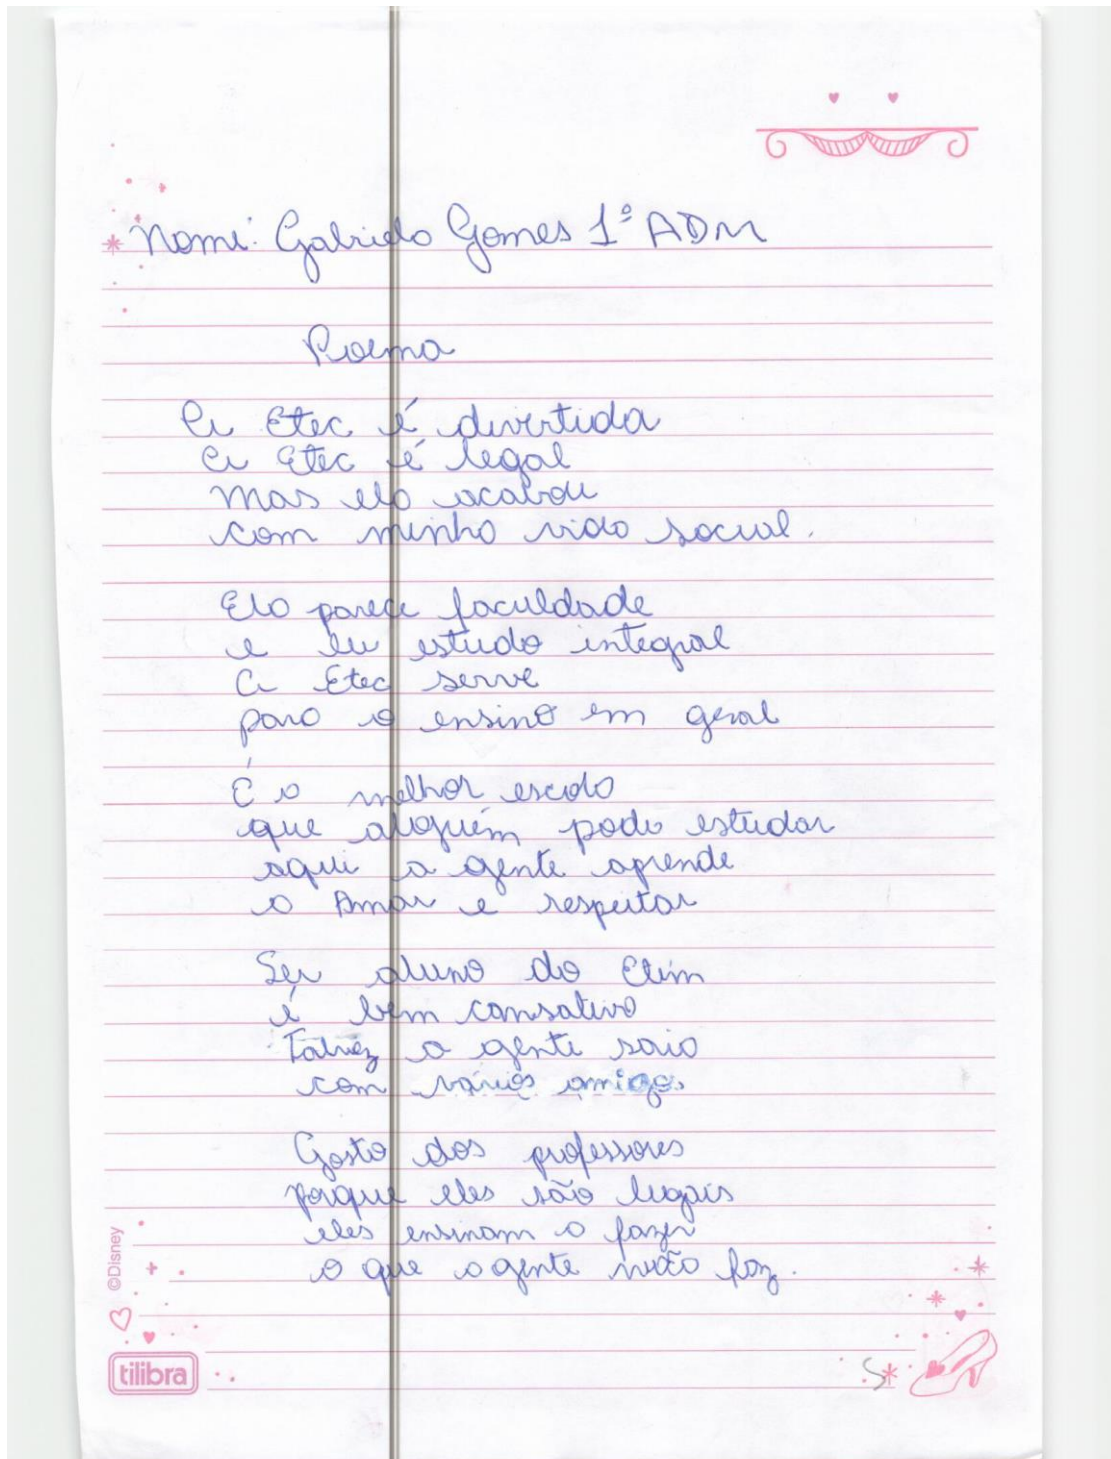 Nome: Gabriela Gomes 1º ADM
Poema
A Etec é divertida
A Etec é legal
Mas ela acabou
com minha vida social.
Ela parece faculdade
e eu estudo integral
A Etec serve
para o ensino em geral
É a melhor escola
que alguém pode estudar
aqui a gente aprende
a Amar e respeitar
Ser aluno do Etim
é bem cansativo
Talvez a gente saia
com vários amigos
Gosto dos professores
porque eles são legais
eles ensinam a fazer
o que a gente faz.
©Disney
tilibra